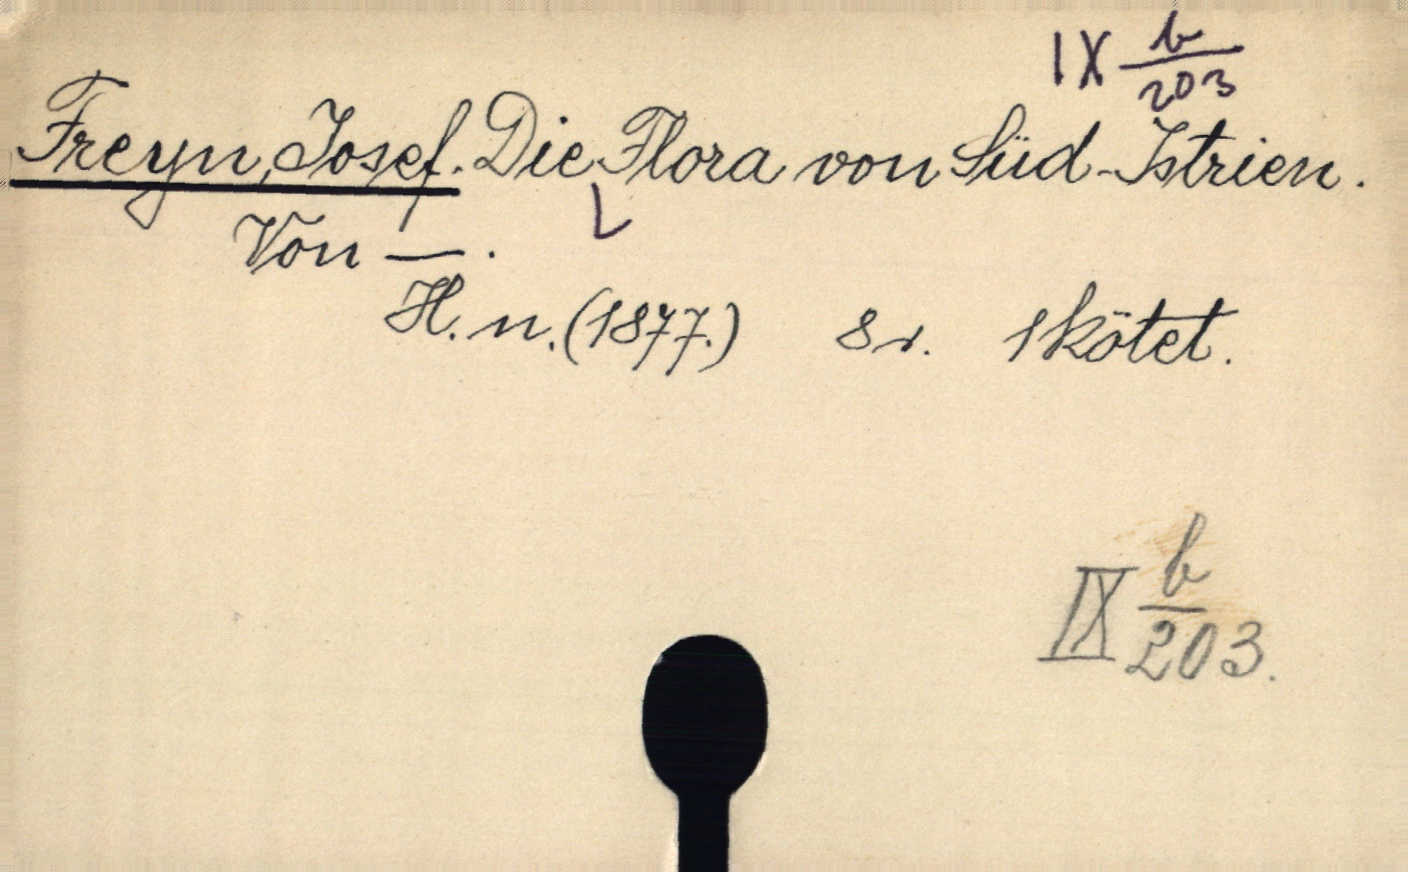 IX b/203
Freyn, Josef. Die Flora von Süd-Istrien.
Von —.
H. n. (1877.) 8r. 1 kötet.
IX b/203.